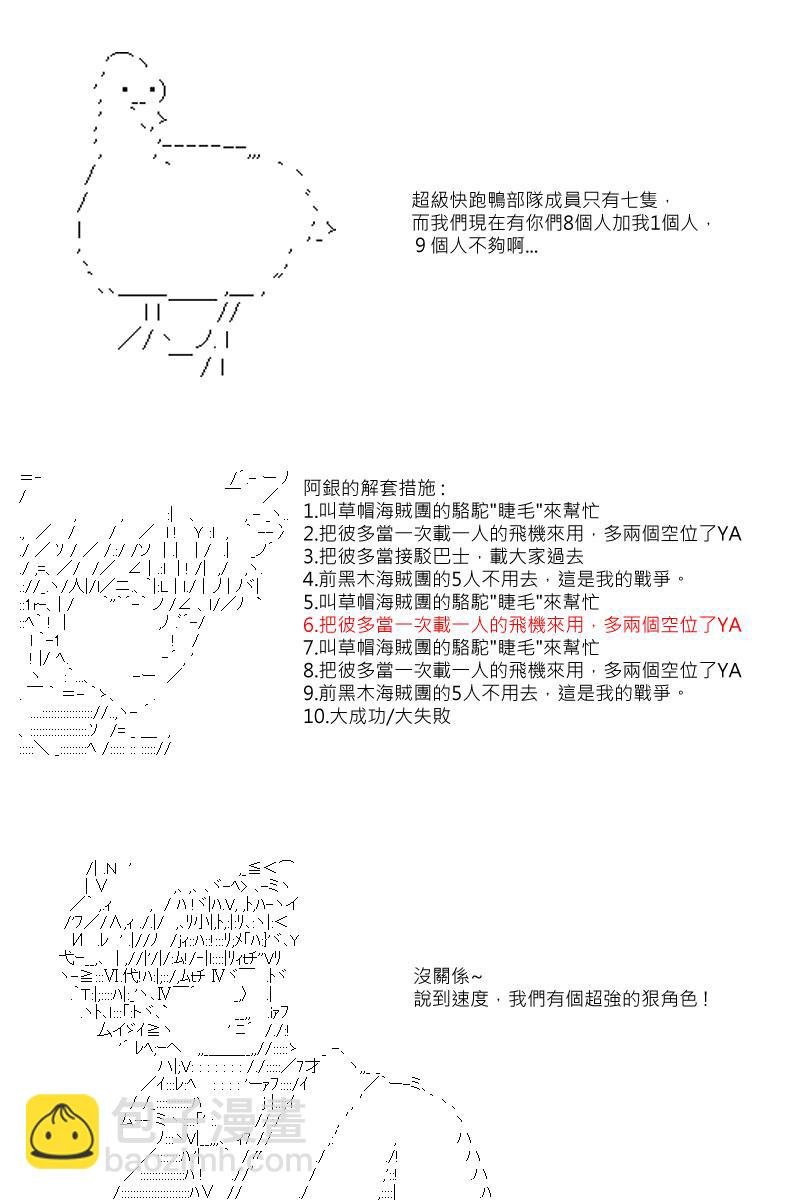 超級快跑鴨部隊成員只有七隻，
而我們現在有你們8個人加我1個人，
９個人不夠啊...
阿銀的解套措施 :
1.叫草帽海賊團的駱駝"睫毛"來幫忙
2.把彼多當一次載一人的飛機來用，多兩個空位了YA
3.把彼多當接駁巴士，載大家過去
4.前黑木海賊團的5人不用去，這是我的戰爭。
5.叫草帽海賊團的駱駝"睫毛"來幫忙
6.把彼多當一次載一人的飛機來用，多兩個空位了YA
7.叫草帽海賊團的駱駝"睫毛"來幫忙
8.把彼多當一次載一人的飛機來用，多兩個空位了YA
9.前黑木海賊團的5人不用去，這是我的戰爭。
10.大成功/大失敗
沒關係~
說到速度，我們有個超強的狠角色 !
包子漫畫
baozimh.com